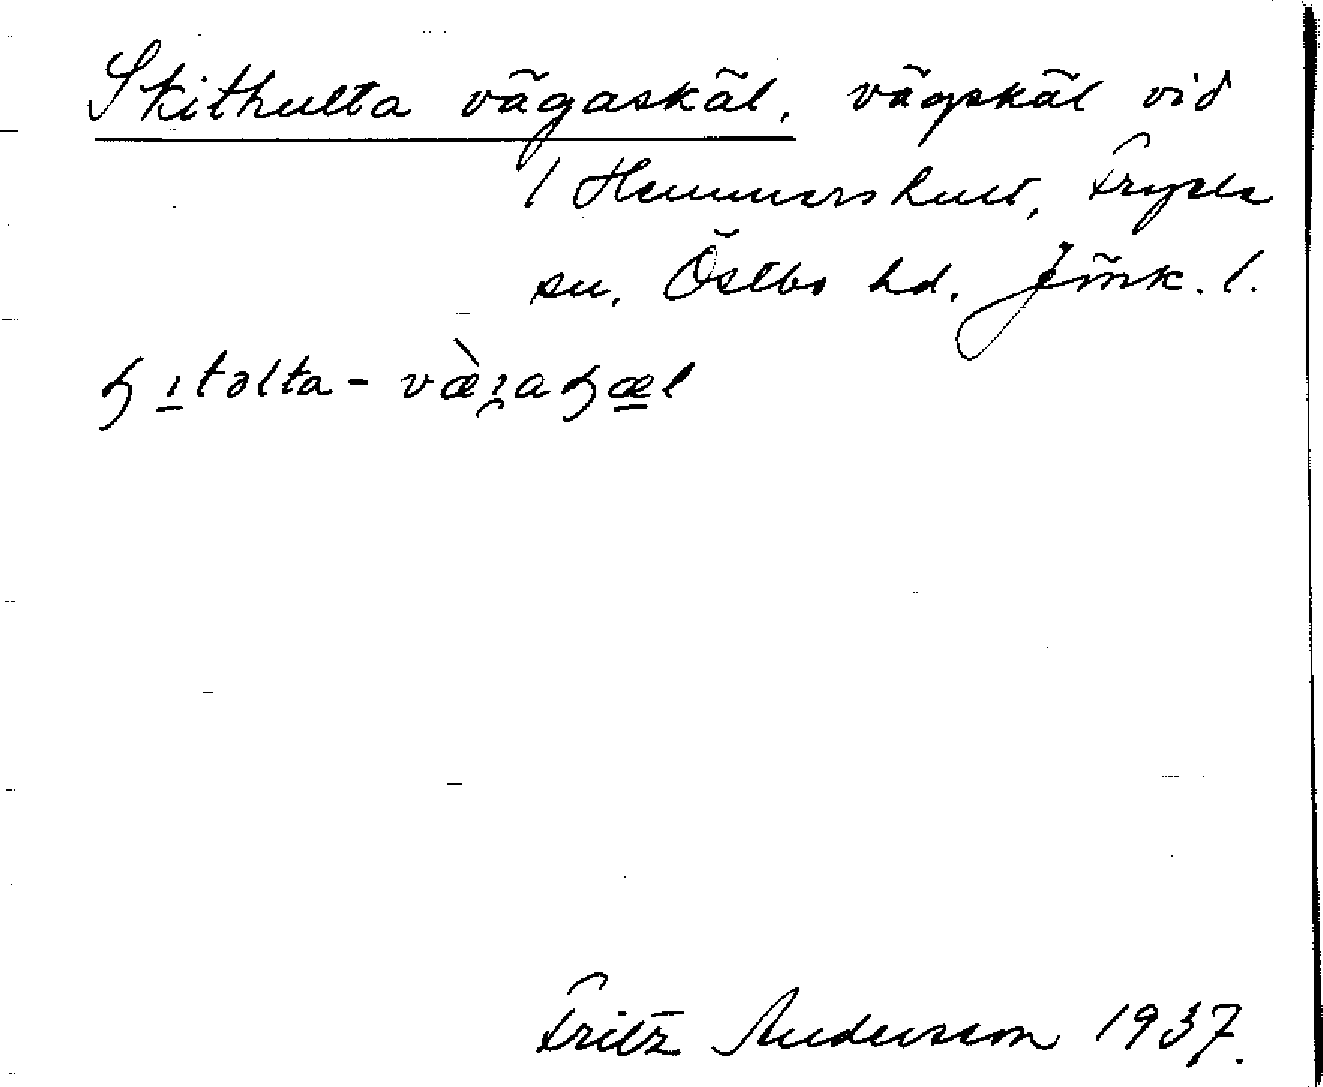 Skithulta vägaskäl, vägskäl vid
/ Hammarshult, Fryele
sn, Östbo hd. Jönk. l.
ɧ ıtɔlta - væ̀ꝛaɧæl
Fritz Andersson 1937.